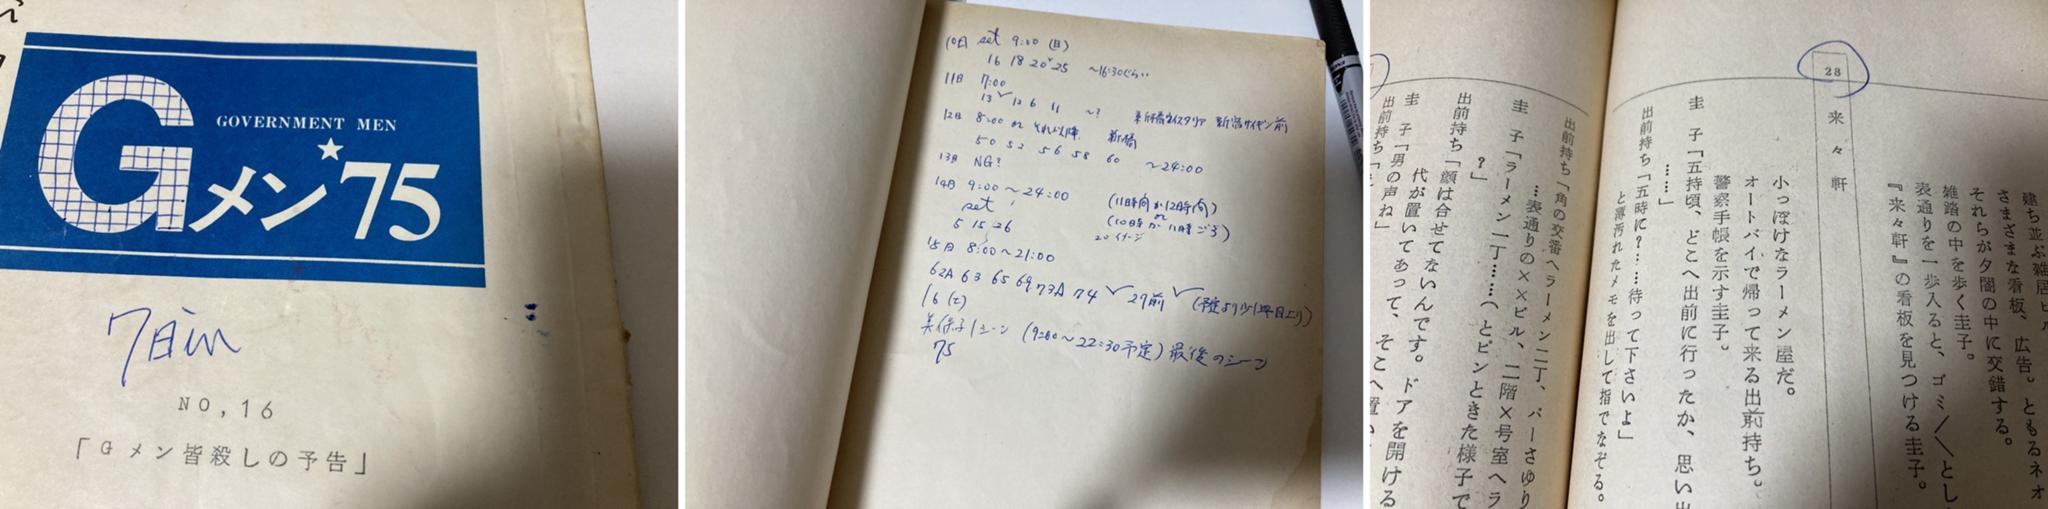 GOVERNMENT MEN
Gメン★'75
7日in
NO,16
「Gメン皆殺しの予告」
10日 set 9:00 (日)
16 18 20 25 ～16:30ぐらい
11日 7:00
13 12 6 11 ～?
12日 8:00 or それ以降 新橋
50 52 56 58 60 ～24:00
13日 NG?
14日 9:00～24:00 (11時向か12時向)
set
5 15 26
15日 8:00～21:00
62A 63 65 69 73A 74 27前
16(土)
美保子1シーン (9:00～22:30予定) 最後のシーン
75
建ち並ぶ雑居ビル
さまざまな看板、広告。ともるネオ
それらが夕闇の中に交錯する。
雑踏の中を歩く圭子。
表通りを一歩入ると、ゴミ〱とし
『来々軒』の看板を見つける圭子。
28 来々軒
小っぽけなラーメン屋だ。
オートバイで帰って来る出前持ち。
警察手帳を示す圭子。
圭 子「五持頃、どこへ出前に行ったか、思い出
……」
出前持ち「五時に?……待って下さいよ」
と薄汚れたメモを出して指でなぞる。
出前持ち「角の交番へラーメン二丁、バーさゆり
…表通りの××ビル、二階×号室へラ
圭 子「ラーメン二丁……(とピンときた様子で
?」
出前持ち「顔は合せてないんです。ドアを開ける
代が置いてあって、そこへ置い
圭 子「男の声ね」
出前持ち「